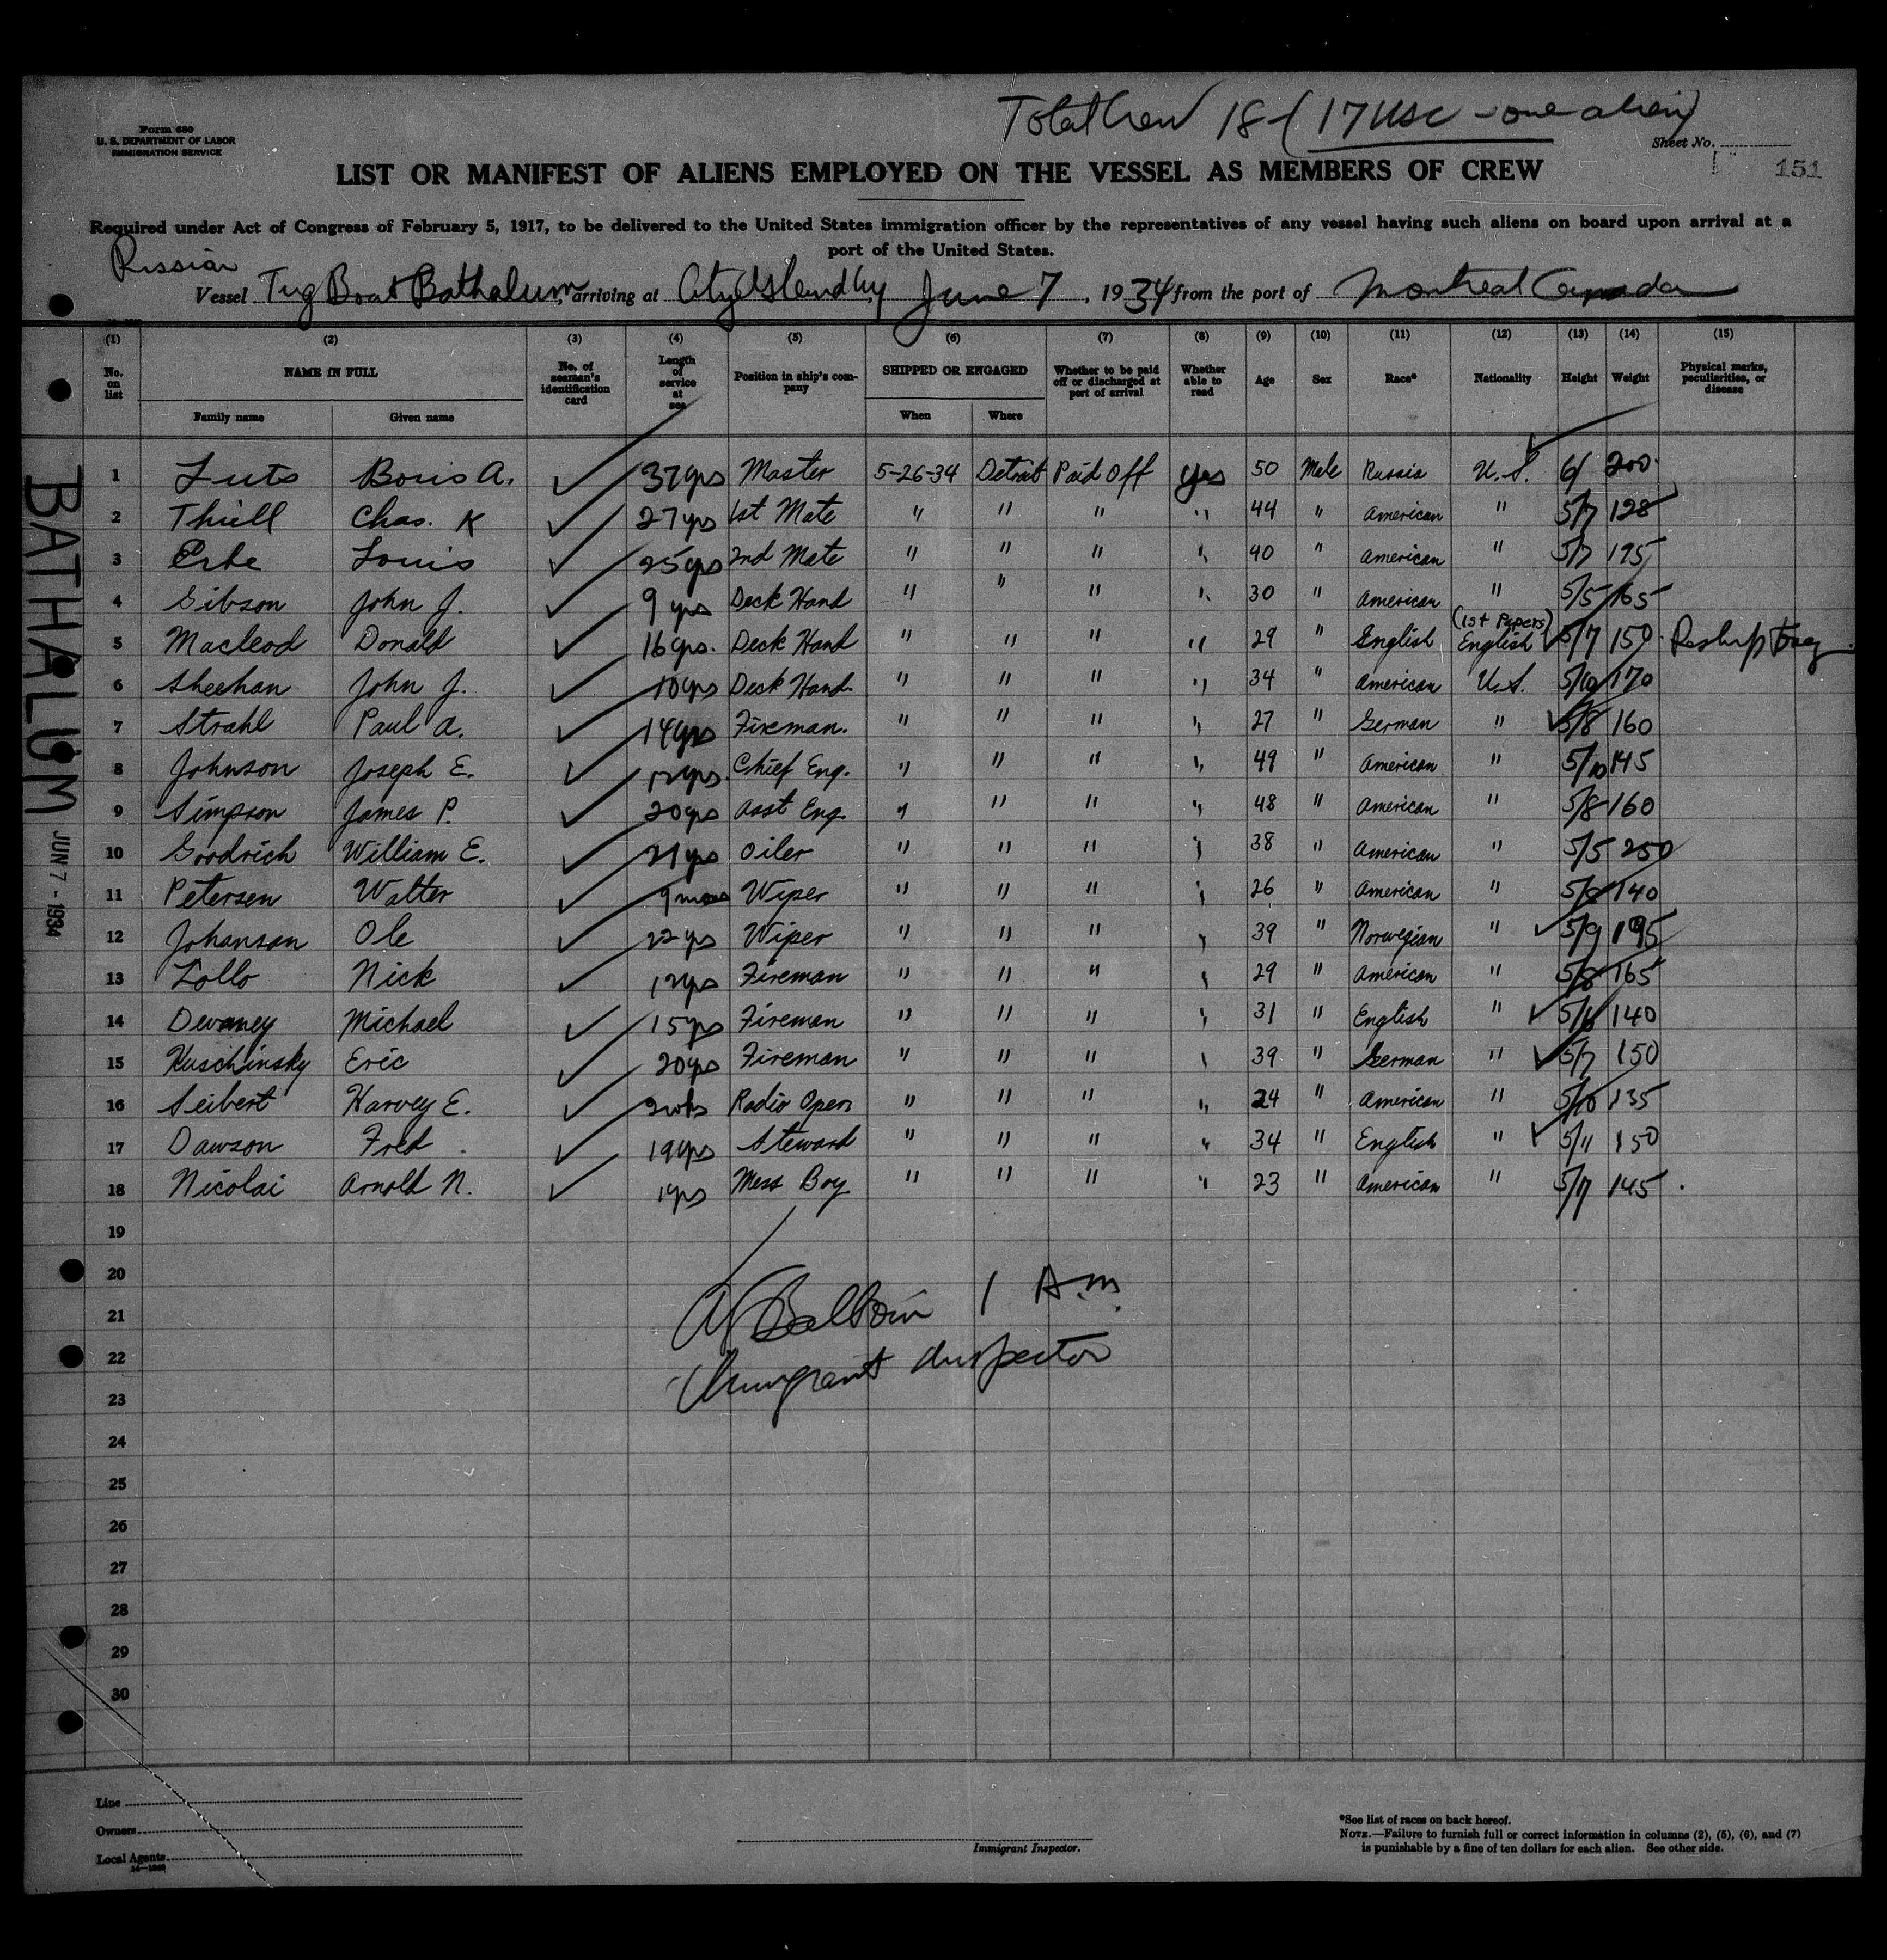 Total Crew 18 - (17 USC - one alien)
Form 680
U. S. DEPARTMENT OF LABOR
IMMIGRATION SERVICE
Sheet No.
151
LIST OR MANIFEST OF ALIENS EMPLOYED ON THE VESSEL AS MEMBERS OF CREW
Required under Act of Congress of February 5, 1917, to be delivered to the United States immigration officer by the representatives of any vessel having such aliens on board upon arrival at a
port of the United States.
Russian
Vessel Tug Boat Bathalum, arriving at City Island Ny June 7, 1934 from the port of Montreal Canada
(1) (2) (3) (4) (5) (6) (7) (8) (9) (10) (11) (12) (13) (14) (15)
No. on list NAME IN FULL Family name Given name No. of seaman's identification card Length of service at sea Position in ship's company SHIPPED OR ENGAGED When Where Whether to be paid off or discharged at port of arrival Whether able to read Age Sex Race* Nationality Height Weight Physical marks, peculiarities, or disease
1 Luts Boris A. ✓ 37 yrs Master 5-26-34 Detroit Paid Off Yes 50 Male Russia U.S. 6/ 200
2 Thull Chas. K ✓ 27 yrs 1st Mate " " " " 44 " American " 5/7 128
3 Erbe Louis ✓ 25 yrs 2nd Mate " " " " 40 " American " 5/7 195
4 Gibson John J. ✓ 9 yrs Deck Hand " " " " 30 " American " 5/5 165
(1st Papers)
5 Macleod Donald ✓ 16 yrs. Deck Hand " " " " 29 " English English ✓ 5/7 150
6 Sheehan John J. ✓ 10 yrs Deck Hand " " " " 34 " American U.S. 5/10 170
7 Strahl Paul A. ✓ 14 yrs Fireman. " " " " 27 " German " ✓ 5/8 160
8 Johnson Joseph E. ✓ 12 yrs. Chief Eng. " " " " 49 " American " 5/10 145
9 Simpson James P. ✓ 20 yrs Asst Eng. " " " " 48 " American " 5/8 160
10 Goodrich William E. ✓ 21 yrs Oiler " " " " 38 " American " 5/5 250
11 Petersen Walter ✓ 9 mos Wiper " " " " 26 " American " 5/8 140
12 Johansan Ole ✓ 22 yrs Wiper " " " " 39 " Norwegian " ✓ 5/9 195
13 Lollo Nick ✓ 12 yrs Fireman " " " " 29 " American " 5/8 165
14 Devaney Michael ✓ 15 yrs Fireman " " " " 31 " English " ✓ 140
15 Kuschinsky Eric ✓ 20 yrs Fireman " " " " 39 " German " ✓ 5/7 150
16 Seibert Harvey E. ✓ 2 wks Radio Oper " " " " 24 " American " 5/10 135
17 Dawson Fred ✓ 19 yrs Steward " " " " 34 " English " ✓ 5/11 150
18 Nicolai Arnold N. ✓ 1 yrs Mess Boy " " " " 23 " American " 5/7 145
19
20
21
22
23
24
25
26
27
28
29
30
1 A.M.
Immigrant Inspector
BATHALUM
JUN 7 - 1934
Line
Owners
Local Agents
Immigrant Inspector.
*See list of races on back hereof.
NOTE.—Failure to furnish full or correct information in columns (2), (5), (6), and (7)
is punishable by a fine of ten dollars for each alien. See other side.